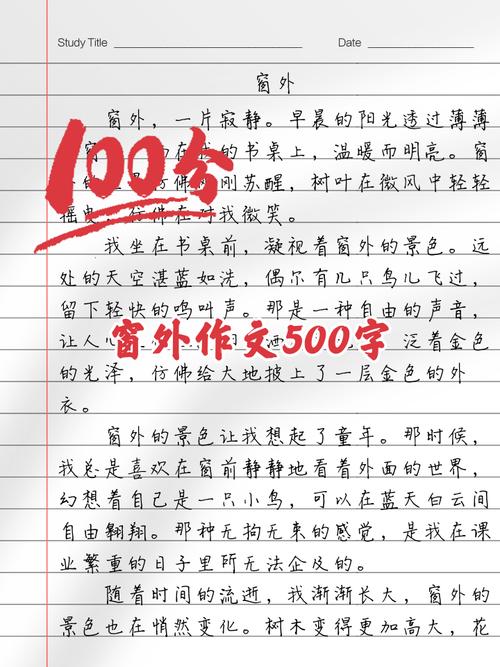 Study Title
Date
窗外
窗外,一片寂静。早晨的阳光透过薄薄
100分
在我的书桌上,温暖而明亮。窗
仿佛刚刚苏醒,树叶在微风中轻轻
摇曳,仿佛在对我微笑。
我坐在书桌前,凝视着窗外的景色。远
处的天空湛蓝如洗,偶尔有几只鸟儿飞过,
留下轻快的鸣叫声。那是一种自由的声音,
让人
窗外作文500字
泛着金色
的光泽,仿佛给大地披上了一层金色的外
衣。
窗外的景色让我想起了童年。那时候,
我总是喜欢在窗前静静地看着外面的世界,
幻想着自己是一只小鸟,可以在蓝天白云间
自由翱翔。那种无拘无束的感觉,是我在课
业繁重的日子里所无法企及的。
随着时间的流逝,我渐渐长大,窗外的
景色也在悄然变化。树木变得更加高大,花